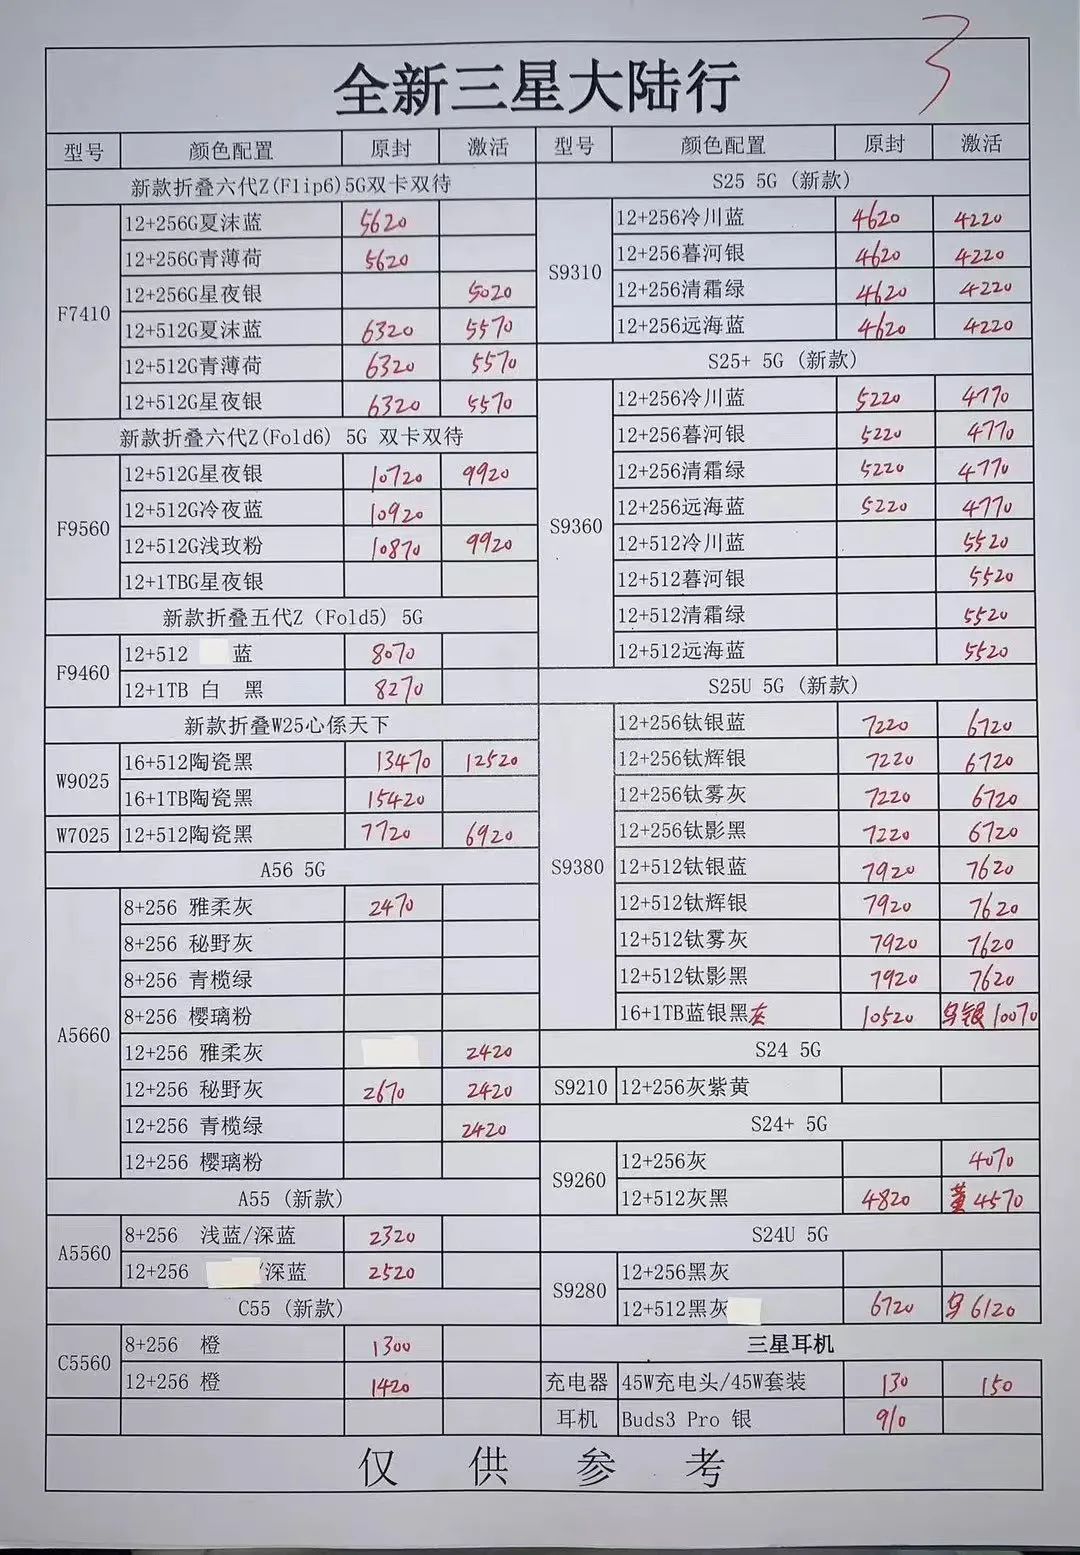 3
全新三星大陆行
型号 颜色配置 原封 激活
新款折叠六代Z(Flip6)5G双卡双待
F7410
12+256G夏沫蓝 5620
12+256G青薄荷 5620
12+256G星夜银 5020
12+512G夏沫蓝 6320 5570
12+512G青薄荷 6320 5570
12+512G星夜银 6320 5570
新款折叠六代Z(Fold6) 5G 双卡双待
F9560
12+512G星夜银 10720 9920
12+512G冷夜蓝 10920
12+512G浅玫粉 10870 9920
12+1TBG星夜银
新款折叠五代Z（Fold5) 5G
F9460
12+512 蓝 8070
12+1TB 白 黑 8270
新款折叠W25心係天下
W9025
16+512陶瓷黑 13470 12520
16+1TB陶瓷黑 15420
W7025 12+512陶瓷黑 7720 6920
A56 5G
A5660
8+256 雅柔灰 2470
8+256 秘野灰
8+256 青榄绿
8+256 樱璃粉
12+256 雅柔灰 2420
12+256 秘野灰 2670 2420
12+256 青榄绿 2420
12+256 樱璃粉
A55 (新款)
A5560
8+256 浅蓝/深蓝 2320
12+256 /深蓝 2520
C55 (新款)
C5560
8+256 橙 1300
12+256 橙 1420
型号 颜色配置 原封 激活
S25 5G (新款)
S9310
12+256冷川蓝 4620 4220
12+256暮河银 4620 4220
12+256清霜绿 4620 4220
12+256远海蓝 4620 4220
S25+ 5G (新款)
S9360
12+256冷川蓝 5220 4770
12+256暮河银 5220 4770
12+256清霜绿 5220 4770
12+256远海蓝 5220 4770
12+512冷川蓝 5520
12+512暮河银 5520
12+512清霜绿 5520
12+512远海蓝 5520
S25U 5G (新款)
S9380
12+256钛银蓝 7220 6720
12+256钛辉银 7220 6720
12+256钛雾灰 7220 6720
12+256钛影黑 7220 6720
12+512钛银蓝 7920 7620
12+512钛辉银 7920 7620
12+512钛雾灰 7920 7620
12+512钛影黑 7920 7620
16+1TB蓝银黑灰 10520 银10070
S24 5G
S9210 12+256灰紫黄
S24+ 5G
S9260
12+256灰 4070
12+512灰黑 4820 4570
S24U 5G
S9280
12+256黑灰
12+512黑灰 6720 6120
三星耳机
充电器 45W充电头/45W套装 130 150
耳机 Buds3 Pro 银 910
仅供参考